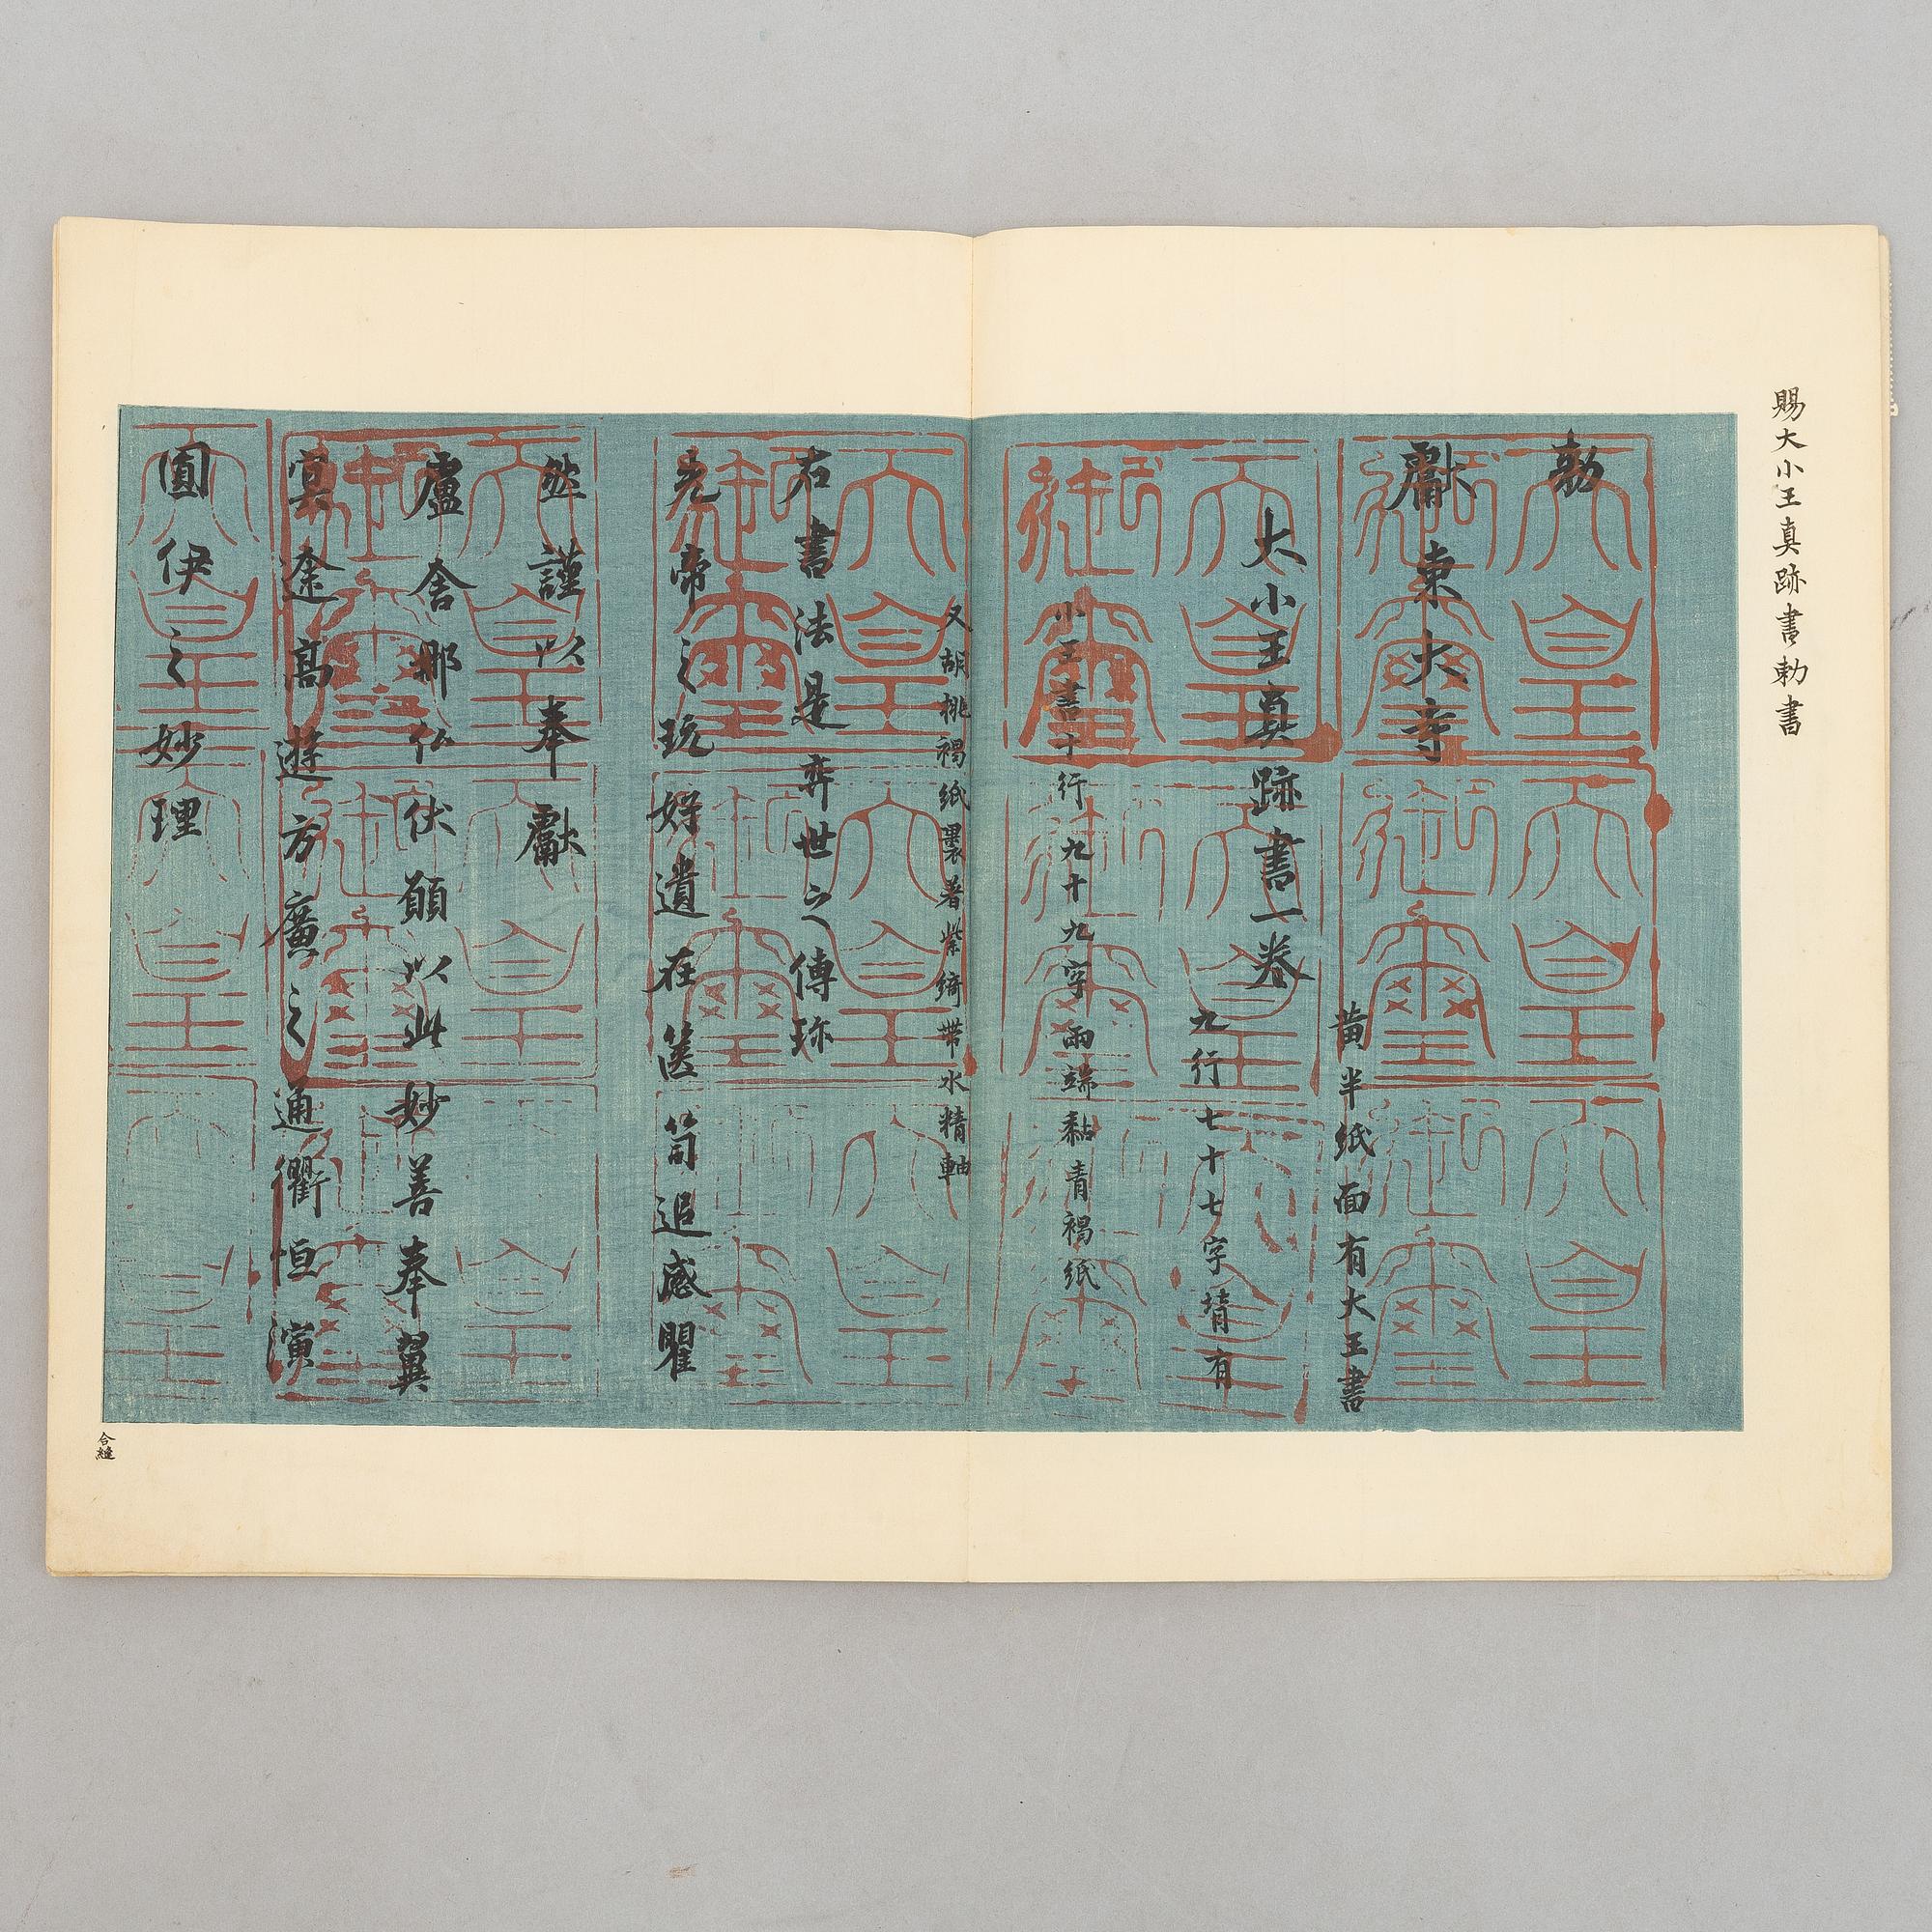 賜大小王真跡書勅書
勅
獻東大寺
大小王真跡書一卷
黄半紙面有大王書
九行七十七字背有
小王書十行九十九字兩端黏青褐紙
又胡桃褐紙裹著紫綺帶水精軸
右書法是弈世之傳珎
先帝之玩好遺在篋笥追感瞿
然謹以奉獻
盧舍那仏伏願以此妙善奉翼
冥途高遊方廣之通衢恒演
圓伊之妙理
天皇御璽
合縫